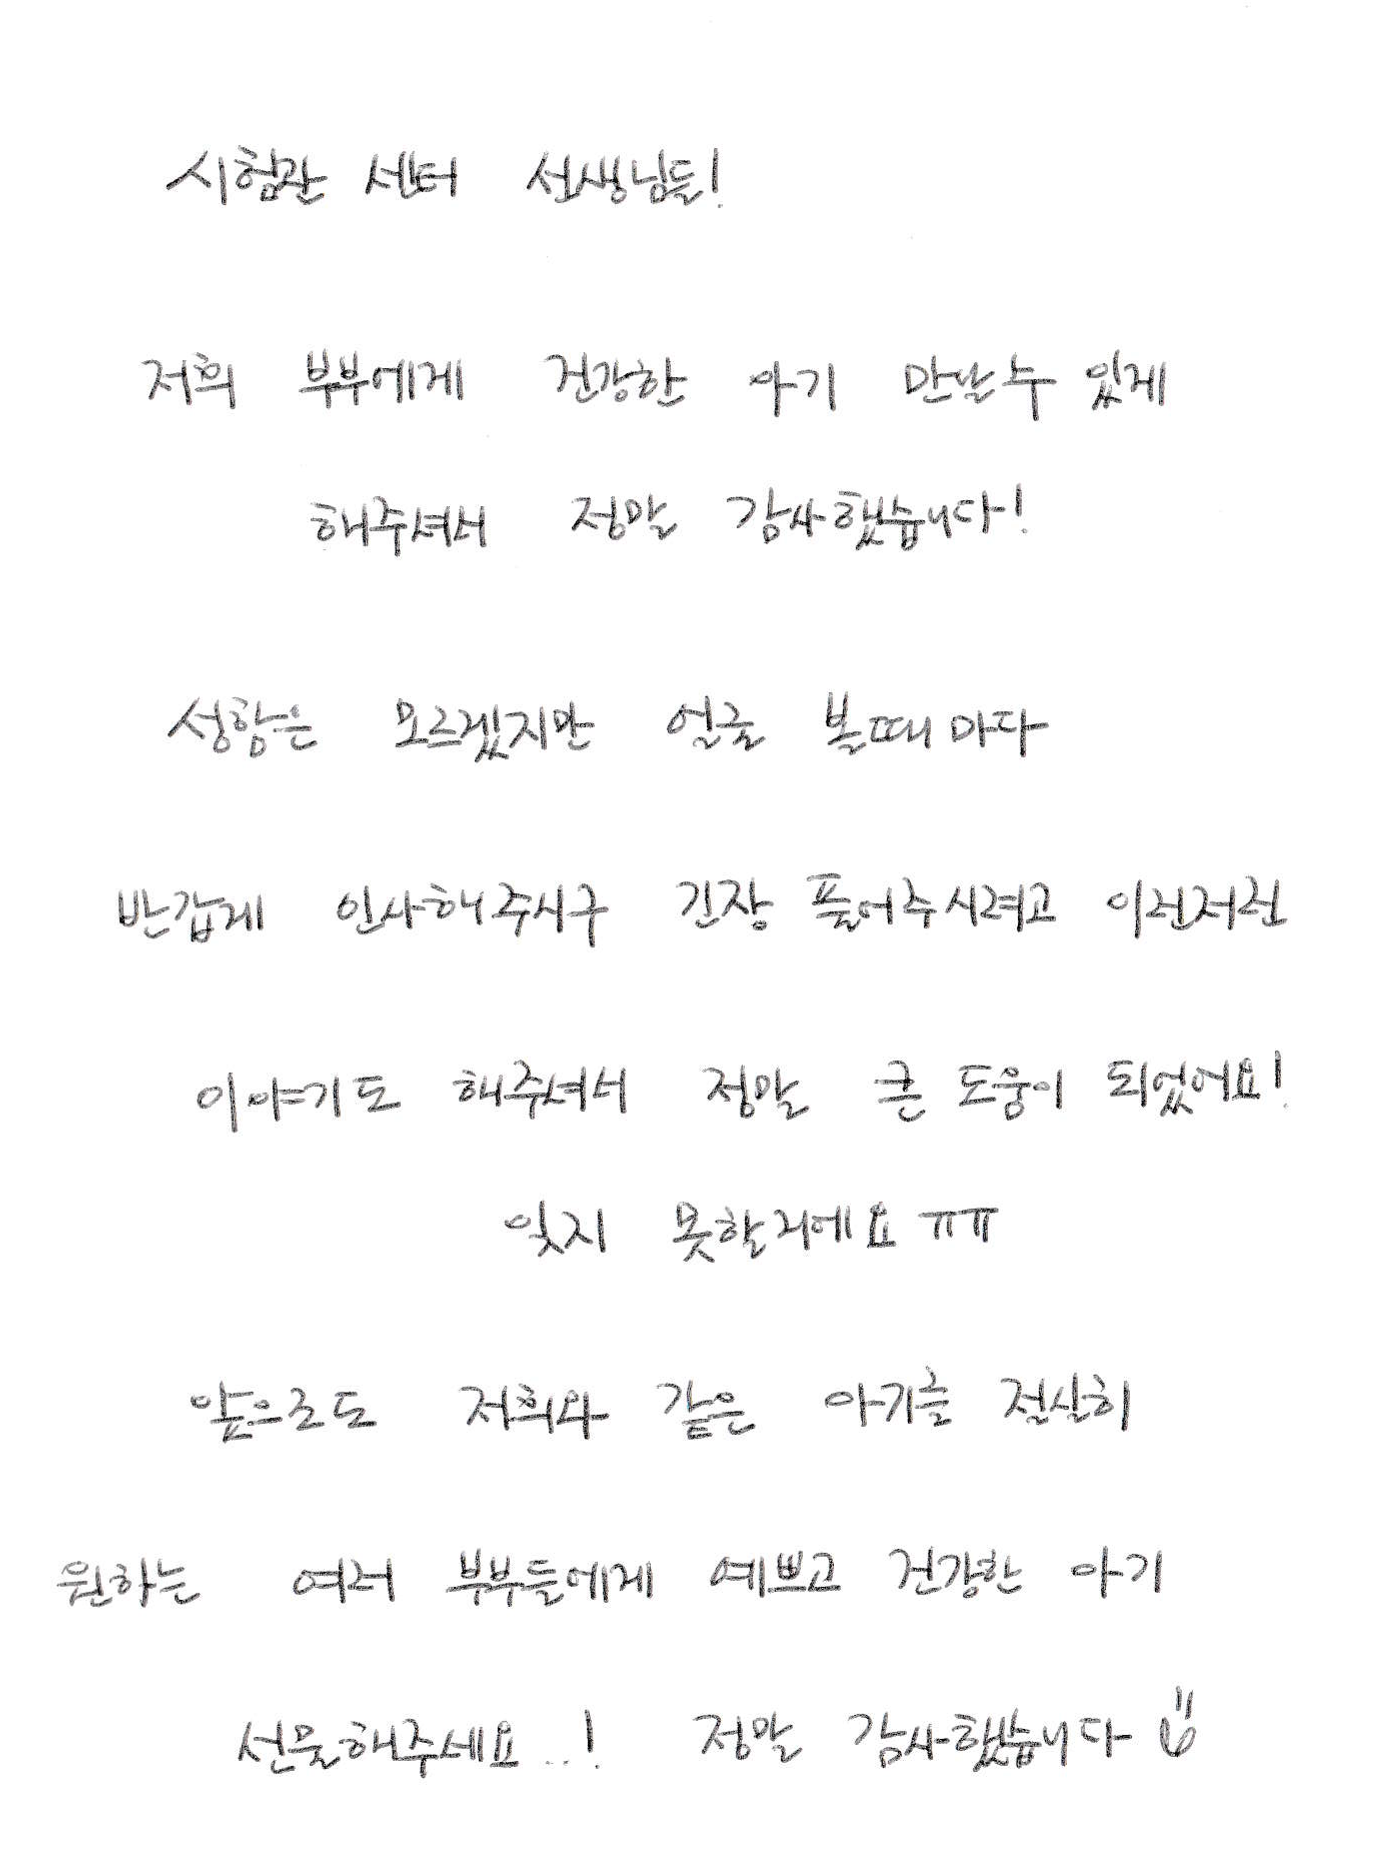 시험관 센터 선생님들!
저희 부부에게 건강한 아기 만날수 있게
해주셔서 정말 감사했습니다!
성함은 모르겠지만 얼굴 볼때마다
반갑게 인사해주시구 긴장 풀어주시려고 이런저런
이야기도 해주셔서 정말 큰 도움이 되었어요!
잊지 못할거에요 ㅠㅠ
앞으로도 저희와 같은 아기를 절실히
원하는 여러 부부들에게 예쁘고 건강한 아기
선물해주세요..! 정말 감사했습니다